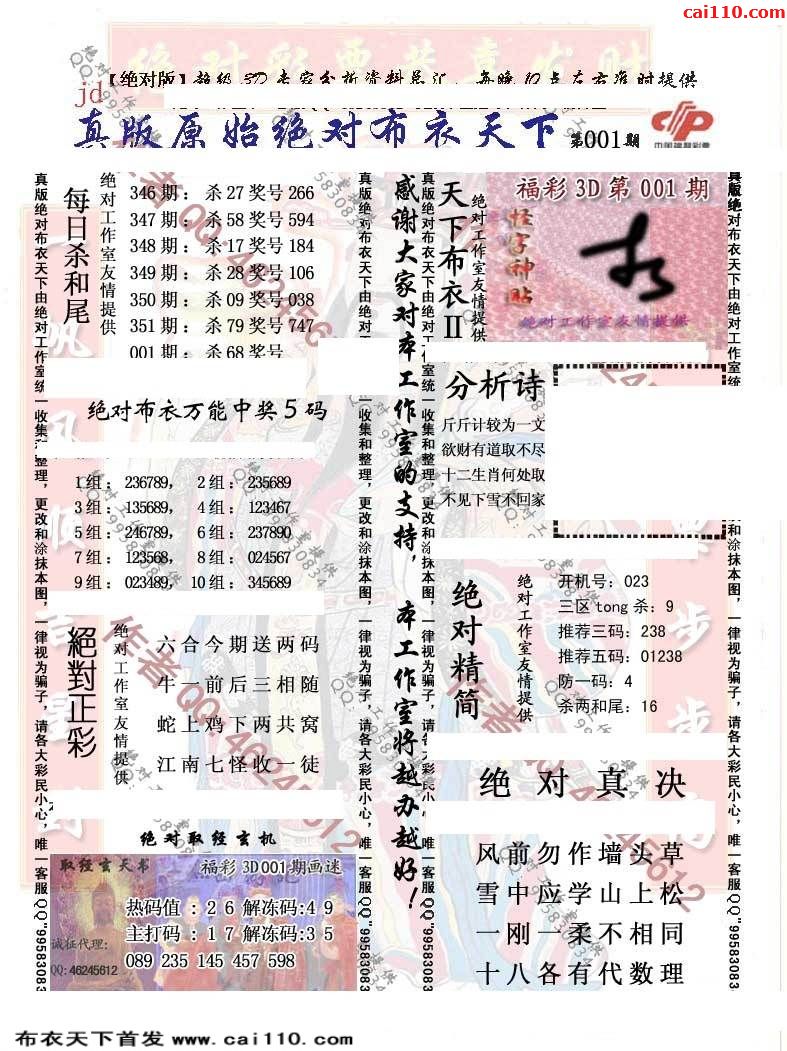 cai110.com
【绝对版】超级3D专家分析资料总汇，每晚10点左右准时提供
jd
真版原始绝对布衣天下 第001期
中国福利彩票
真版绝对布衣天下由绝对工作室统一收集和整理，更改和涂抹本图，一律视为骗子，请各大彩民小心，唯一客服QQ"99583083
每日杀和尾
绝对工作室友情提供
346期：杀27奖号266
347期：杀58奖号594
348期：杀17奖号184
349期：杀28奖号106
350期：杀09奖号038
351期：杀79奖号747
001期：杀68奖号
绝对布衣万能中奖5码
1组：236789， 2组：235689
3组：135689， 4组：123467
5组：246789， 6组：237890
7组：123568， 8组：024567
9组：023489， 10组：345689
絕對正彩
绝对工作室友情提供
六合今期送两码
牛一前后三相随
蛇上鸡下两共窝
江南七怪收一徒
绝对取经玄机
取经玄天书
福彩3D001期画迷
热码值：26解冻码:49
主打码：17解冻码:35
089 235 145 457 598
诚征代理:
QQ:46245612
真版绝对布衣天下由绝对工作室统一收集和整理，更改和涂抹本图，一律视为骗子，请各大彩民小心，唯一客服QQ"99583083
感谢大家对本工作室的支持，本工作室将越办越好！
真版绝对布衣天下由绝对工作室统一收集和整理，更改和涂抹本图，一律视为骗子，请各大彩民小心，唯一客服QQ"99583083
天下布衣II
绝对工作室友情提供
福彩3D第001期
怪字神贴
绝对工作室友情提供
分析诗
斤斤计较为一文
欲财有道取不尽
十二生肖何处取
不见下雪不回家
绝对精简
绝对工作室友情提供
开机号：023
三区tong杀：9
推荐三码：238
推荐五码：01238
防一码：4
杀两和尾：16
绝对真决
风前勿作墙头草
雪中应学山上松
一刚一柔不相同
十八各有代数理
真版绝对布衣天下由绝对工作室统
和涂抹本图，一律视为骗子，请各大彩民小心，唯一客服QQ"99583083
作者QQ:46245612
布衣天下首发 www.cai110.com